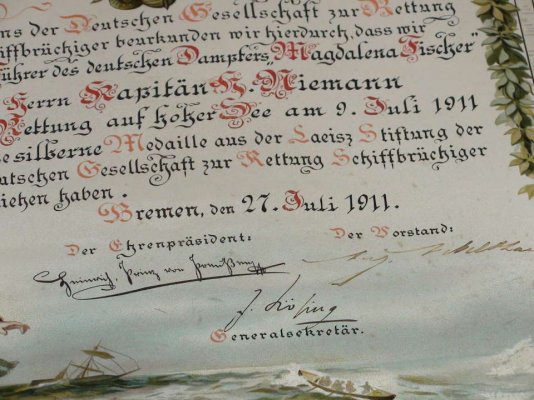 ns der Deutschen Gesellschaft zur Rettung
iffbrüchiger beurkunden wir hierdurch, dass wir
führer des deutschen Dampfers „Magdalena Fischer"
Herrn Kapitän H. Niemann
Rettung auf hoher See am 9. Juli 1911
e silberne Medaille aus der Laeisz Stiftung der
eutschen Gesellschaft zur Rettung Schiffbrüchiger
liehen haben.
Bremen, den 27. Juli 1911.
Der Ehrenpräsident: Der Vorstand:
Heinrich, Prinz von Preußen
Generalsekretär.